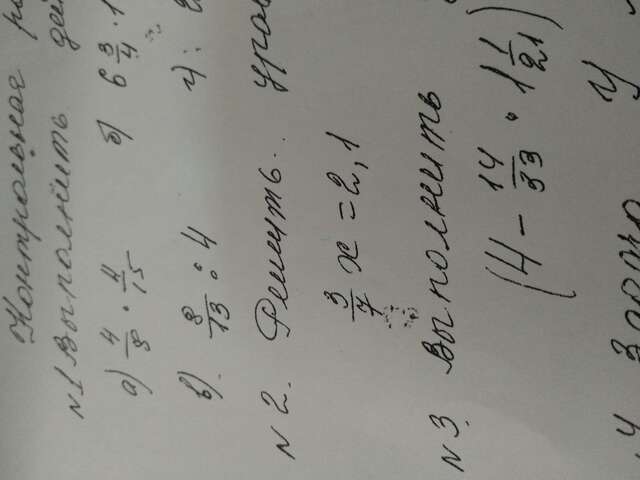 Контрольная
№1 Выполнить
а) 4/8 · 4/15 б) 6 3/4 · 1
в) 8/13 : 4 г)
№2. Решить
3/7 x = 2,1
№3 Выполнить
(4 - 14/33 · 1 1/21)
Задача У